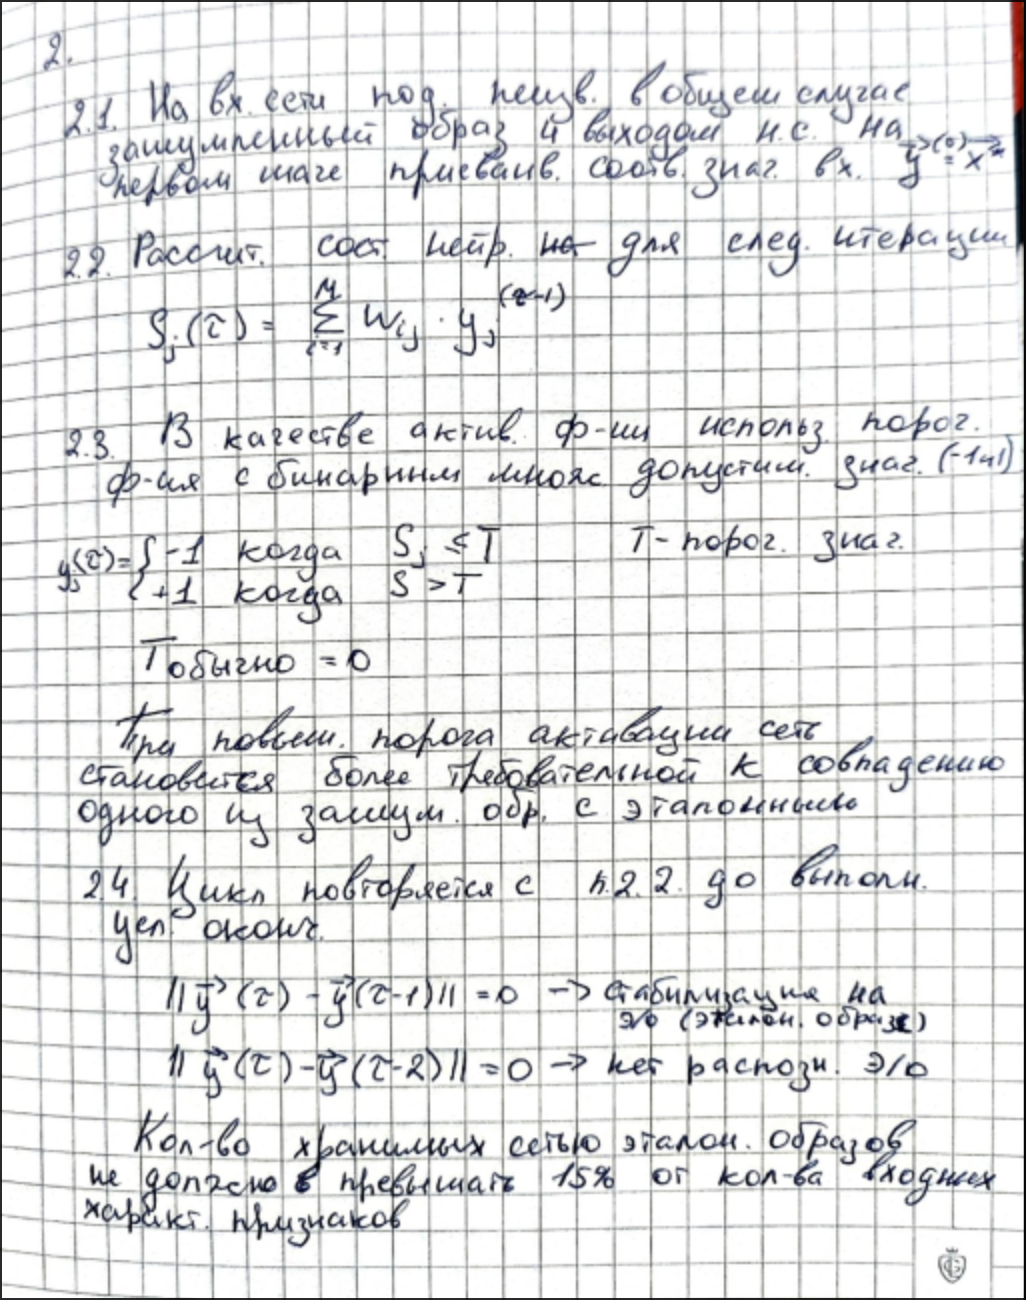 2.
2.1. На вх. сети под. неизв. в общем случае
зашумленный образ и выходом н.с. на
первом шаге присваив. соотв. знач. вх. y⃗⁽⁰⁾ = x⃗*
2.2. Рассчит. сост. нейр. на для след. итерации
Sⱼ(τ) = Σᵢ₌₁ᴹ wᵢⱼ · yⱼ⁽τ⁻¹⁾
2.3. В качестве актив. ф-ии использ. порог.
ф-ия с бинарным множ. допустим. знач. (-1и1)
yⱼ(τ) = { -1 когда Sⱼ ≤ T T - порог. знач.
{ +1 когда S > T
T обычно = 0
При повыш. порога активации сеть
становится более требовательной к совпадению
одного из зашум. обр. с эталонным
2.4. Цикл повторяется с п.2.2. до выполн.
усл. оконч.
||y⃗(τ) - y⃗(τ-1)|| = 0 -> стабилизация на
э/о (эталон. образе)
||y⃗(τ) - y⃗(τ-2)|| = 0 -> нет распозн. э/о
Кол-во хранимых сетью эталон. образов
не должно превышать 15% от кол-ва входных
характ. признаков